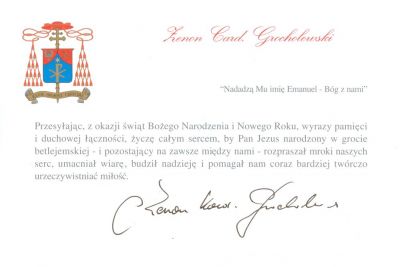 Zenon Card. Grocholewski
“Nadadzą Mu imię Emanuel - Bóg z nami”
Przesyłając, z okazji świąt Bożego Narodzenia i Nowego Roku, wyrazy pamięci
i duchowej łączności, życzę całym sercem, by Pan Jezus narodzony w grocie
betlejemskiej - i pozostający na zawsze między nami - rozpraszał mroki naszych
serc, umacniał wiarę, budził nadzieję i pomagał nam coraz bardziej twórczo
urzeczywistniać miłość.
Zenon Kard. Grocholewski